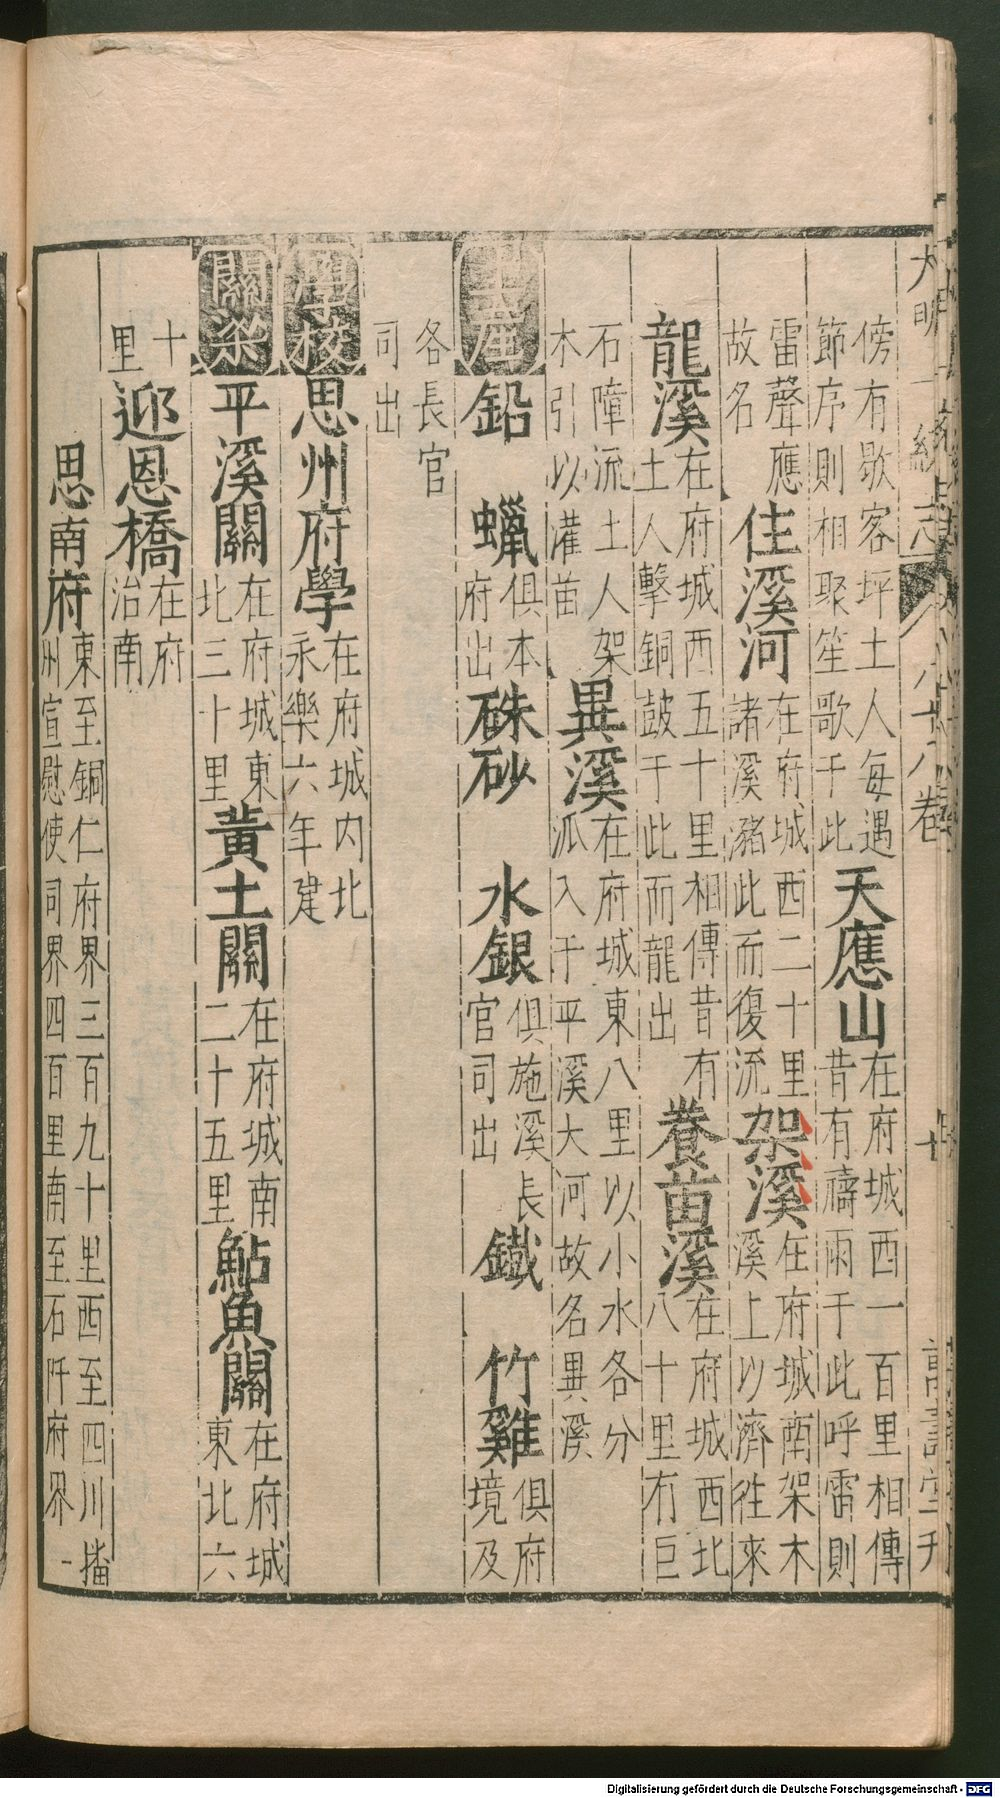 大明一統志 八十八卷 十
傍有歇客坪土人每遇
節序則相聚笙歌于此 天應山 在府城西一百里相傳
昔有禱雨于此呼雷則
雷聲應
故名 住溪河 在府城西二十里
諸溪瀦此而復流 架溪 在府城南架木
溪上以濟往來
龍溪 在府城西五十里相傳昔有
土人擊銅鼓于此而龍出 養苗溪 在府城西北
八十里有巨
石障流土人架
木引以灌苗 異溪 在府城東八里以小水各分
派入于平溪大河故名異溪
土產 鉛 蠟 俱本
府出 硃砂 水銀 俱施溪長
官司出 鐵 竹雞 俱府
境及
各長官
司出
學校 思州府學 在府城内北
永樂六年建
關梁 平溪關 在府城東
北三十里 黃土關 在府城南
二十五里 鮎魚關 在府城
東北六
十
里 迎恩橋 在府
治南
思南府 東至銅仁府界三百九十里西至四川播
州宣慰使司界四百里南至石阡府界一
Digitalisierung gefördert durch die Deutsche Forschungsgemeinschaft - DFG